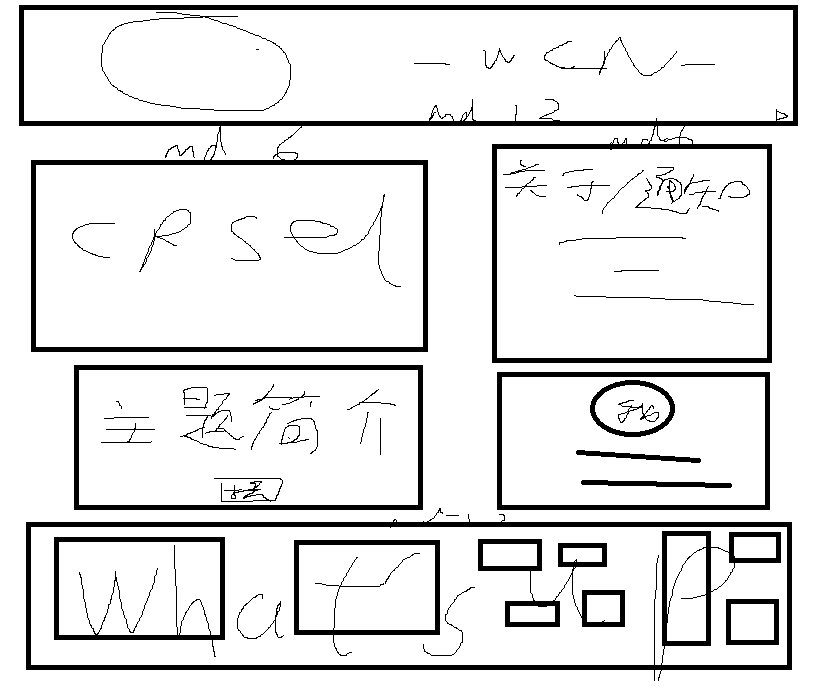 - W C N -
md 12
md 6
md 6
c p s e l
关于/通知
主题简介
我
What's up